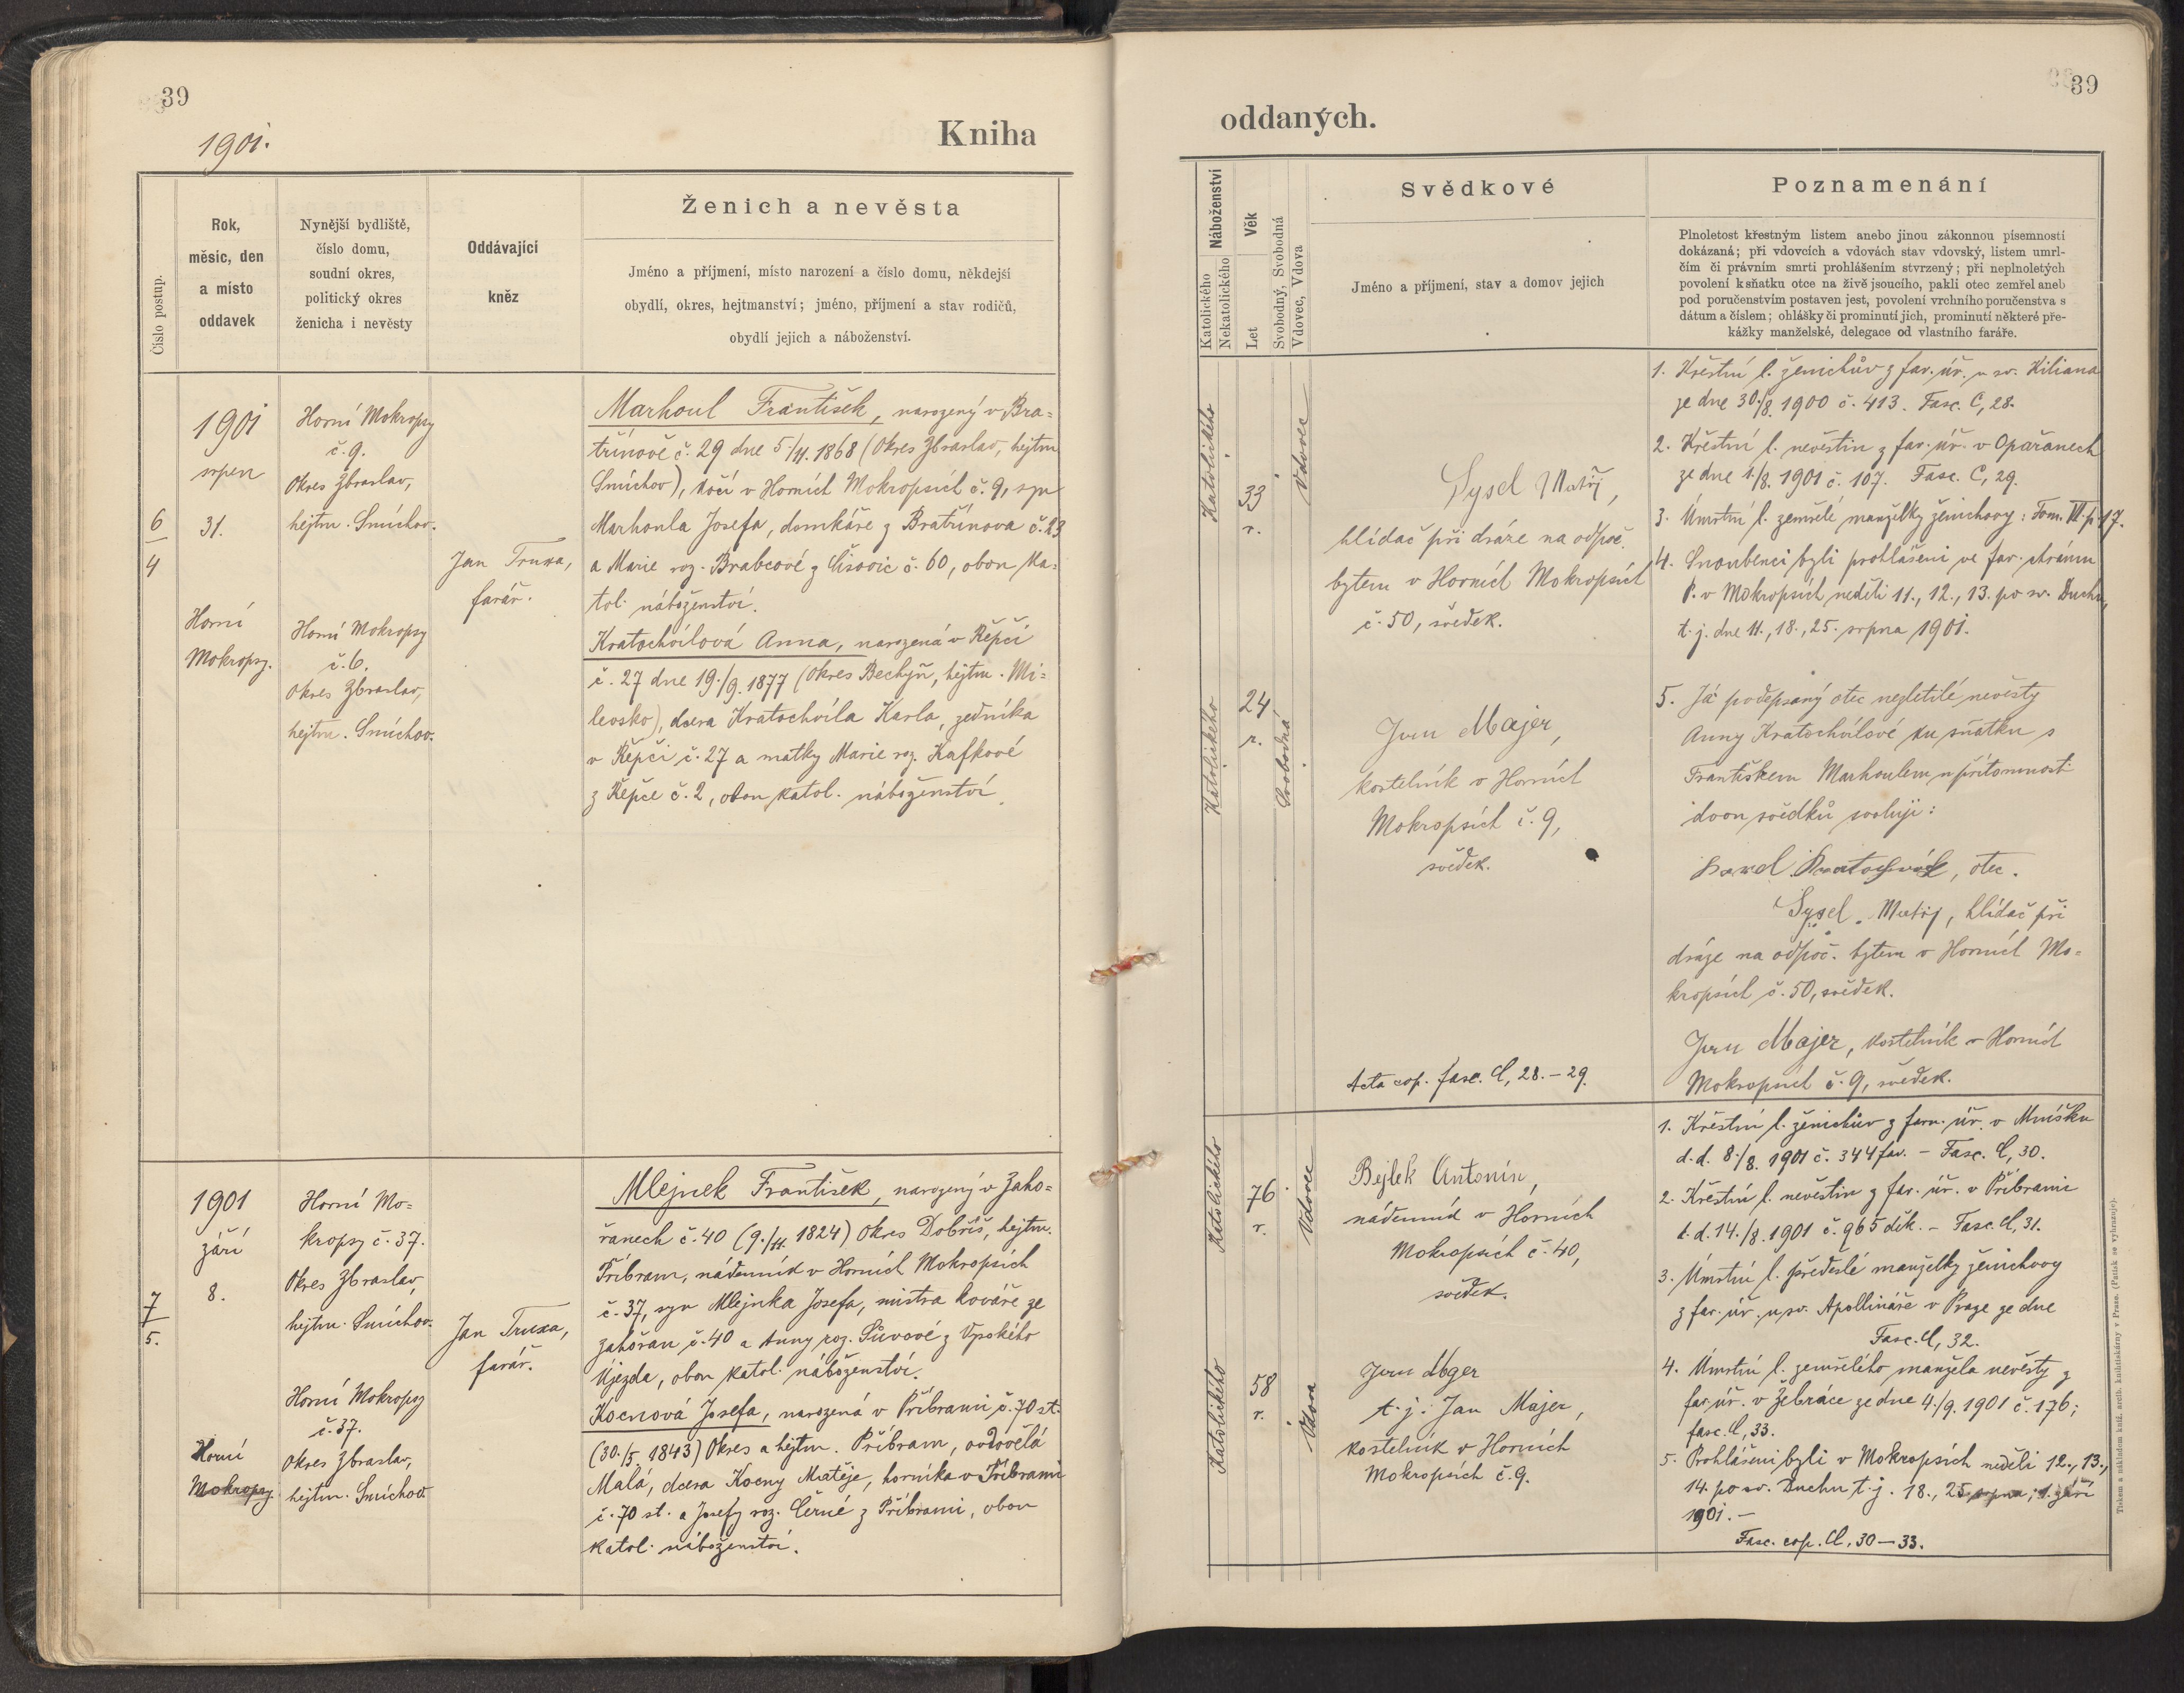 39
1901.
Kniha
Číslo postup.
Rok,
měsic, den
a místo
oddavek
Nynější bydliště,
číslo domu,
soudní okres,
politický okres
ženicha i nevěsty
Oddávající
kněz
Ženich a nevěsta
Jméno a příjmení, místo narození a číslo domu, někdejší
obydlí, okres, hejtmanství; jméno, příjmení a stav rodičů,
obydlí jejich a náboženství.
6
4
1901
srpen
31.
Horní
Mokropsy.
Horní Mokropsy
č. 9.
Okres Zbraslav,
hejtm. Smíchov.
Horní Mokropsy
č. 6.
Okres Zbraslav,
hejtm. Smíchov.
Jan Truxa,
farář.
Marhoul František, narozený v Bra=
třínově č. 29 dne 5./4. 1868 (Okres Zbraslav, hejtm.
Smíchov), kočí v Horních Mokropsích č. 9, syn
Marhoula Josefa, domkáře z Bratřínova č. 23
a Marie roz. Brabcové z Čisovic č. 60, obou ka=
tol. náboženství.
Kratochvílová Anna, narozená v Řepči
č. 27 dne 19./9. 1877 (Okres Bechyň, hejtm. Mi=
levsko), dcera Kratochvíla Karla, zedníka
v Řepči č. 27 a matky Marie roz. Kafkové
z Řepče č. 2, obou katol. náboženství.
7
5.
1901
září
8.
Horní
Mokropsy.
Horní Mo=
kropsy č. 37.
Okres Zbraslav,
hejtm. Smíchov.
Horní Mokropsy
č. 37.
Okres Zbraslav,
hejtm. Smíchov
Jan Truxa,
farář.
Mlejnek František, narozený v Zaho=
řanech č. 40 (9./11. 1824) Okres Dobříš, hejtm.
Příbram, nádenník v Horních Mokropsích
č. 37, syn Mlejnka Josefa, mistra kováře ze
Zahořan č. 40 a Anny roz. Sůvové z
Újezda, obou katol. náboženství.
Kocnová Josefa, narozená v Příbrami č. 70 st.
(30./5. 1843) Okres a hejtm. Příbram, ovdovělá
Malá, dcera Kocny Matěje, horníka v Příbrami
č. 70 st. a Josefy roz. Černé z Příbrami, obou
katol. náboženství.
39
oddaných.
Náboženství
Katolického
Nekatolického
Věk
Let
Svobodný, Svobodná
Vdovec, Vdova
Svědkové
Jméno a příjmení, stav a domov jejich
Poznamenání
Plnoletost křestným listem anebo jinou zákonnou písemností
dokázaná; při vdovcích a vdovách stav vdovský, listem umrl-
čím či právním smrti prohlášením stvrzený; při neplnoletých
povolení k sňatku otce na živě jsoucího, pakli otec zemřel aneb
pod poručenstvím postaven jest, povolení vrchního poručenstva s
dátum a číslem; ohlášky či prominutí jich, prominutí některé pře-
kážky manželské, delegace od vlastního faráře.
Katolického
33
r.
Vdovec
Katolického
24
r.
Svobodná
Sysel Matěj,
hlídač při dráze na odpoč.
bytem v Horních Mokropsích
č. 50, svědek.
Jan Majer,
kostelník v Horních
Mokropsích č. 9,
svědek.
Acta cop. fasc. C, 28.–29.
1. Křestní l. ženichův z far. úř. u sv. Kiliana
ze dne 30./8. 1900 č. 413. Fasc. C, 28.
2. Křestní l. nevěstin z far. úř. v Opařanech
ze dne 1./8. 1901 č. 107. Fasc. C, 29.
3. Úmrtní l. zemřelé manželky ženichovy: Tom. VI. p. 17.
4. Snoubenci byli prohlášeni ve far. chrámu
P. v Mokropsích neděli 11., 12., 13. po sv. Duchu,
t. j. dne 11., 18., 25. srpna 1901.
5. Já podepsaný otec nezletilé nevěsty
Anny Kratochvílové ku sňatku s
Františkem Marhoulem u přítomnosti
dvou svědků svoluji:
Karel Kratochvíl, otec.
Sysel Matěj, hlídač při
dráze na odpoč. bytem v Horních Mo=
kropsích č. 50, svědek.
Jan Majer, kostelník v Horních
Mokropsích č. 9, svědek.
Katolického
76
r.
Vdovec
Katolického
58
r.
Vdova
Bejlek Antonín,
nádenník v Horních
Mokropsích č. 40,
svědek.
Jan
t. j. Jan Majer,
kostelník v Horních
Mokropsích č. 9.
1. Křestní l. ženichův z farn. úř. v Mníšku
d. d. 8./8. 1901 č. 344 far. – Fasc. C, 30.
2. Křestní l. nevěstin z far. úř. v Příbrami
d. d. 14./8. 1901 č. 965 děk. – Fasc. C, 31.
3. Úmrtní l. předešlé manželky ženichovy
z far. úř. u sv. Apollináře v Praze ze dne
Fasc. C, 32.
4. Úmrtní l. zemřelého manžela nevěsty z
far. úř. v Žebráce ze dne 4./9. 1901 č. 176;
fasc. C, 33.
5. Prohlášeni byli v Mokropsích neděli 12., 13.,
14. po sv. Duchu t. j. 18., 25. srpna, 1. září
1901. –
Fasc. cop. C, 30–33.
Tiskem a nákladem kníž. arcib. knihtiskárny v Praze. (Patisk se vyhrazuje).